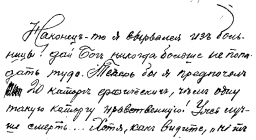 Наконец-то я вырвался изъ боль-
ницы! дай Богъ никогда больше не попа-
дать туда. Теперь бы я предпочелъ
20 каторгъ физическихъ, чѣмъ одну
такую каторгу нравственную! Ужъ луч-
ше смерть... Хотя, какъ видите, и